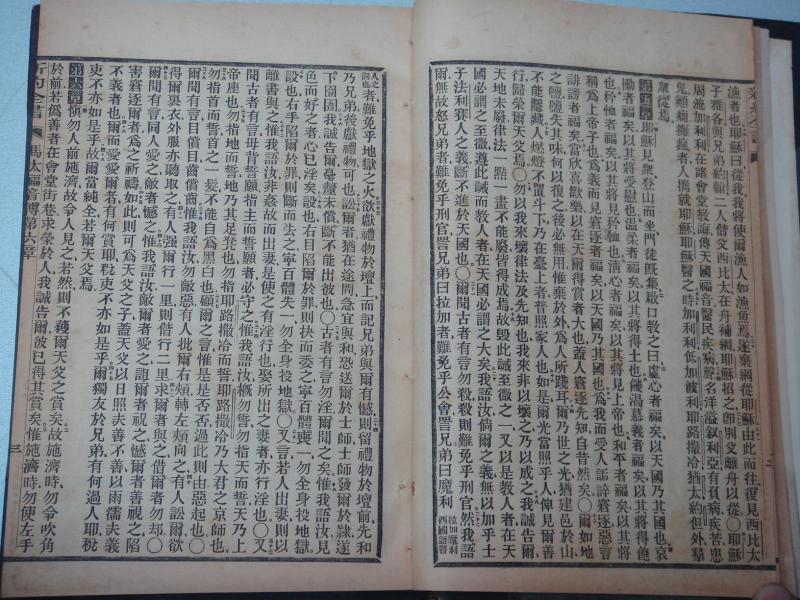 漁者也耶穌曰從我我將使爾漁人如漁魚焉遂棄網從耶穌由此而往復見西比太
子雅各與兄弟約翰二人偕父西比太在舟補網耶穌招之卽別父離舟以從〇耶穌
周流加利利在諸會堂敎誨傳天國福音醫民疾病聲名洋溢叙利亞有負病疾苦患
鬼癲癎癱瘋者人攜就耶穌耶穌醫之時加利利低加波利耶路撒冷猶太約但外羣
衆從焉
第五章耶穌見衆登山而坐門徒旣集啟口敎之曰虛心者福矣以天國乃其國也哀
慟者福矣以其將受慰也溫柔者福矣以其將得土也饑渴慕義者福矣以其將得飽
也矜恤者福矣以其將見矜恤也清心者福矣以其將見上帝也和平者福矣以其將
稱爲上帝子也爲義而見窘逐者福矣以天國乃其國也爲我而受人詬誶窘逐惡言
誹謗者福矣當欣喜歡樂以在天爾得賞者大也蓋人窘逐先知自昔然矣〇爾如地
之鹽鹽失其味何以復之後必無用惟棄於外爲人所踐耳爾乃世之光猶建邑於山
不能隱藏人燃燈不置斗下乃在臺上者普照家人也如是爾光當照乎人俾見爾善
行歸榮爾天父焉〇勿以我來壞律法及先知也我來非以壞之乃以成之我誠告爾
天地未廢律法一點一畫不能廢皆得成焉故毀此誡至微之一又以是敎人者在天
國必謂之至微遵此誡而敎人者在天國必謂之大矣我語汝倘爾之義無以加乎士
子法利賽人之義斷不進於天國也〇爾聞古者有言勿殺殺則難免乎刑官然我語
爾無故怒兄弟者難免乎刑官詈兄弟曰拉加者難免乎公會詈兄弟曰魔利拉加魔利西國語詈
人之詞也者難免乎地獄之火故獻禮物於壇上而記兄弟與爾有憾則留禮物於壇前先和
乃兄弟後獻禮物可也訟爾者猶在途間急宜與和恐送爾於士師士師發爾於隸遂
下囹圄我誠告爾毫釐未償斷不能出彼也〇古者有言勿淫爾聞之矣惟我語汝見
色而好之者心已淫矣設也右目陷爾於罪則抉而委之寧百體喪一勿全身投地獄
設也右手陷爾於罪則斷而去之寧百體失一勿全身投地獄〇又言若人出妻則以
離書與之惟我語汝非姦故而出妻是使之有淫行也娶所出之妻者亦行淫也〇又
聞古者有言毋背誓願指主而誓願者必守之惟我語汝槪勿誓勿指天而誓天乃上
帝座也勿指地而誓地乃其足凳也勿指耶路撒冷而誓耶路撒冷乃大君之京師也
勿指首而誓首之一髮不能自爲黑白也顧爾之言惟是是否否過此則由惡起也〇
爾聞有言目償目齒償齒惟我語汝勿敵惡有人批爾右頰轉左頰向之有人訟爾欲
得爾裏衣外服亦聽取之有人强爾行一里則偕行二里求爾者與之借爾者勿却〇
爾聞有言同人愛之敵者憾之惟我語汝敵爾者愛之詛爾者祝之憾爾者善視之陷
害窘逐爾者爲之祈禱如此則可爲天父之子蓋天父以日照夫善不善以雨濡夫義
不義者也爾而愛愛爾者有何賞耶稅吏不亦如是乎爾獨友於兄弟有何過人耶稅
吏不亦如是乎故爾當純全若爾天父焉
第六章愼勿人前施濟故令人見之若然則不獲爾天父之賞矣故施濟時勿令吹角
於前若僞善者在會堂街巷求榮於人我誠告爾彼已得其賞矣惟施濟時勿使左手
新約全書
馬太福音傳第六章
三